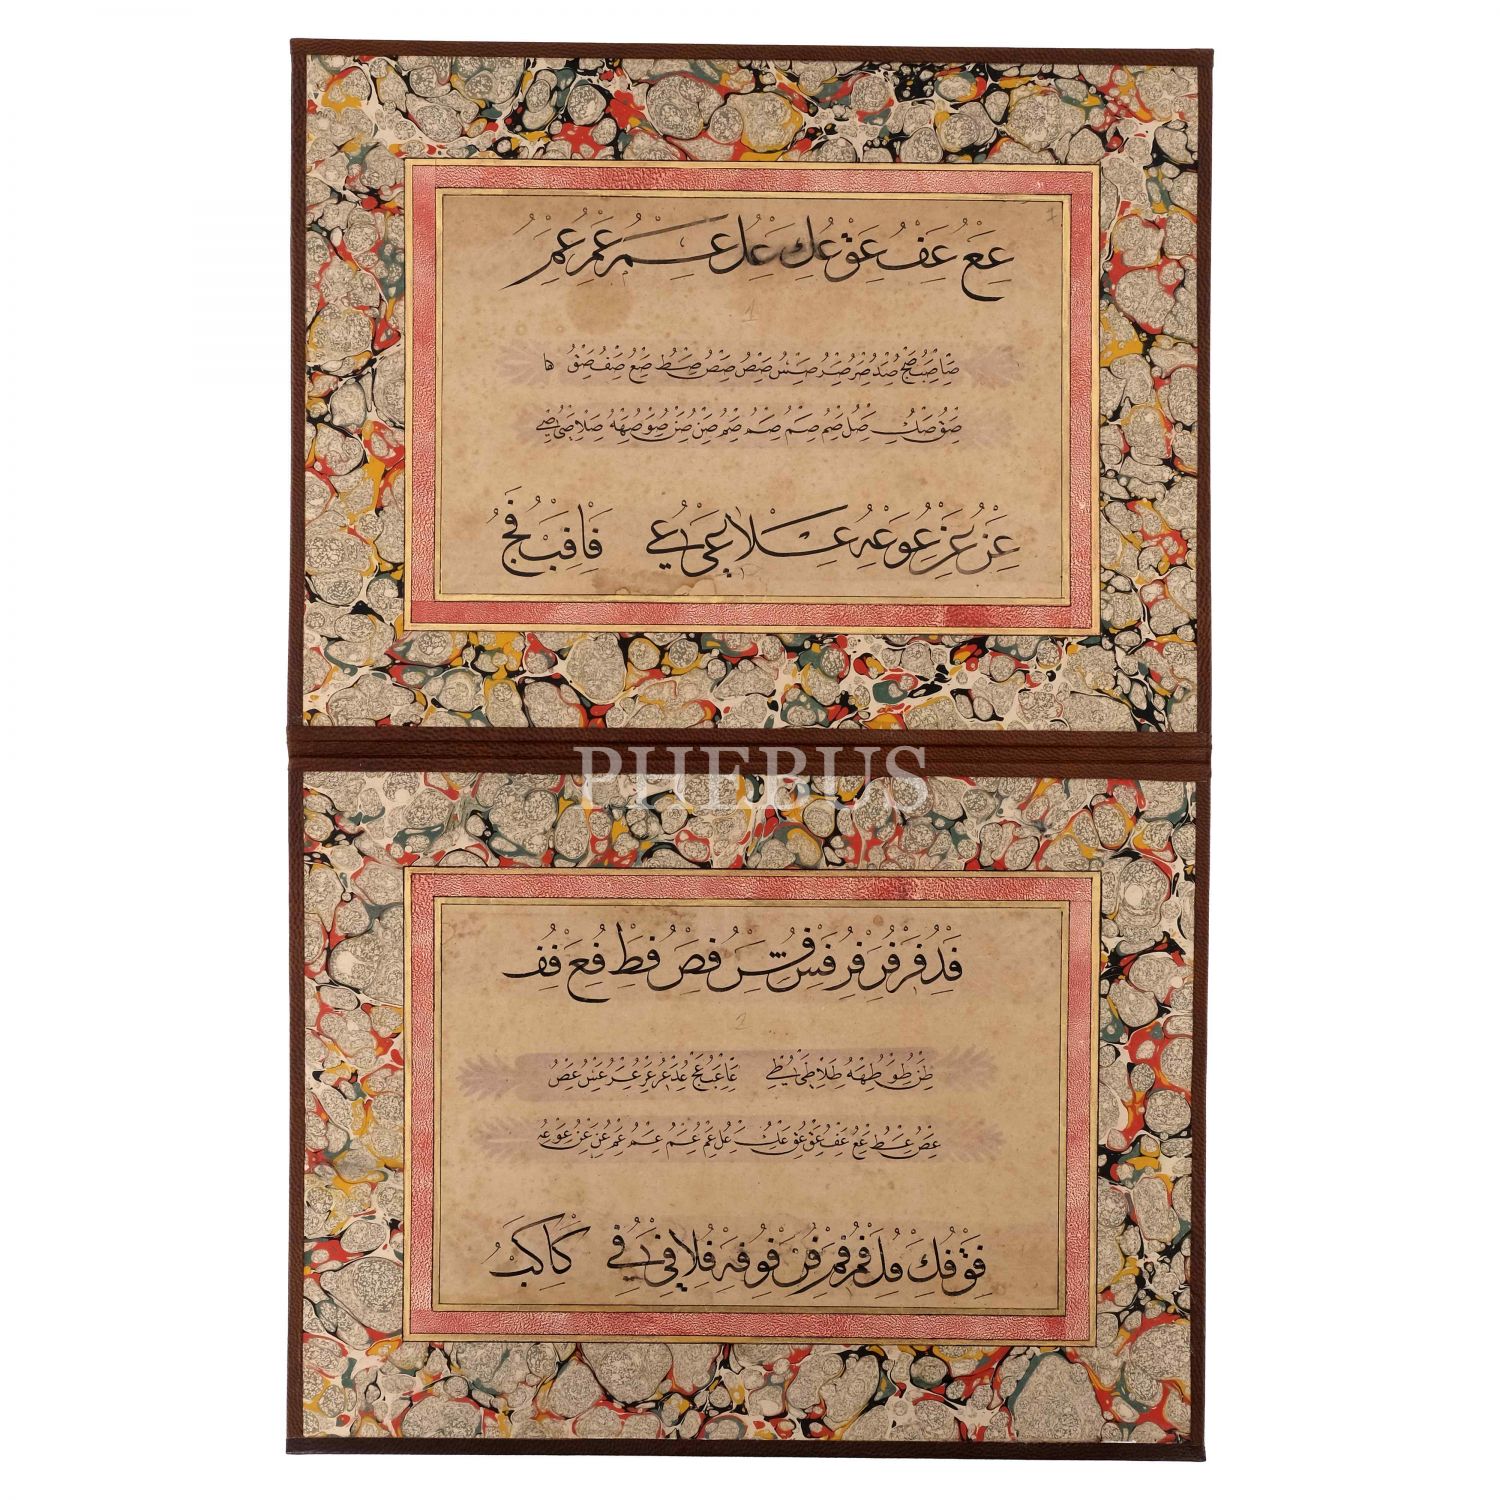 عع عف عق عك عل عم عمر عمر
1
صا صب صج صد صر صر صس صص صص صط صع صف صق ها
صق صك صل صم صم صم صم صن صن صو صه صلا صى صے
عن عن عو عه علا عى عے فا فب فج
PHEBUS
فد فر فر فر فس فس فص فط فع فف
2
طن طو طه طلا طى طے عا عب عج عد عر عر عر عس عص
عص عط عع عف عق عق عك عل عم عم عم عم عن عن عو عه
فق فك فل فم فم فن فو فه فلا فى فے كا كب